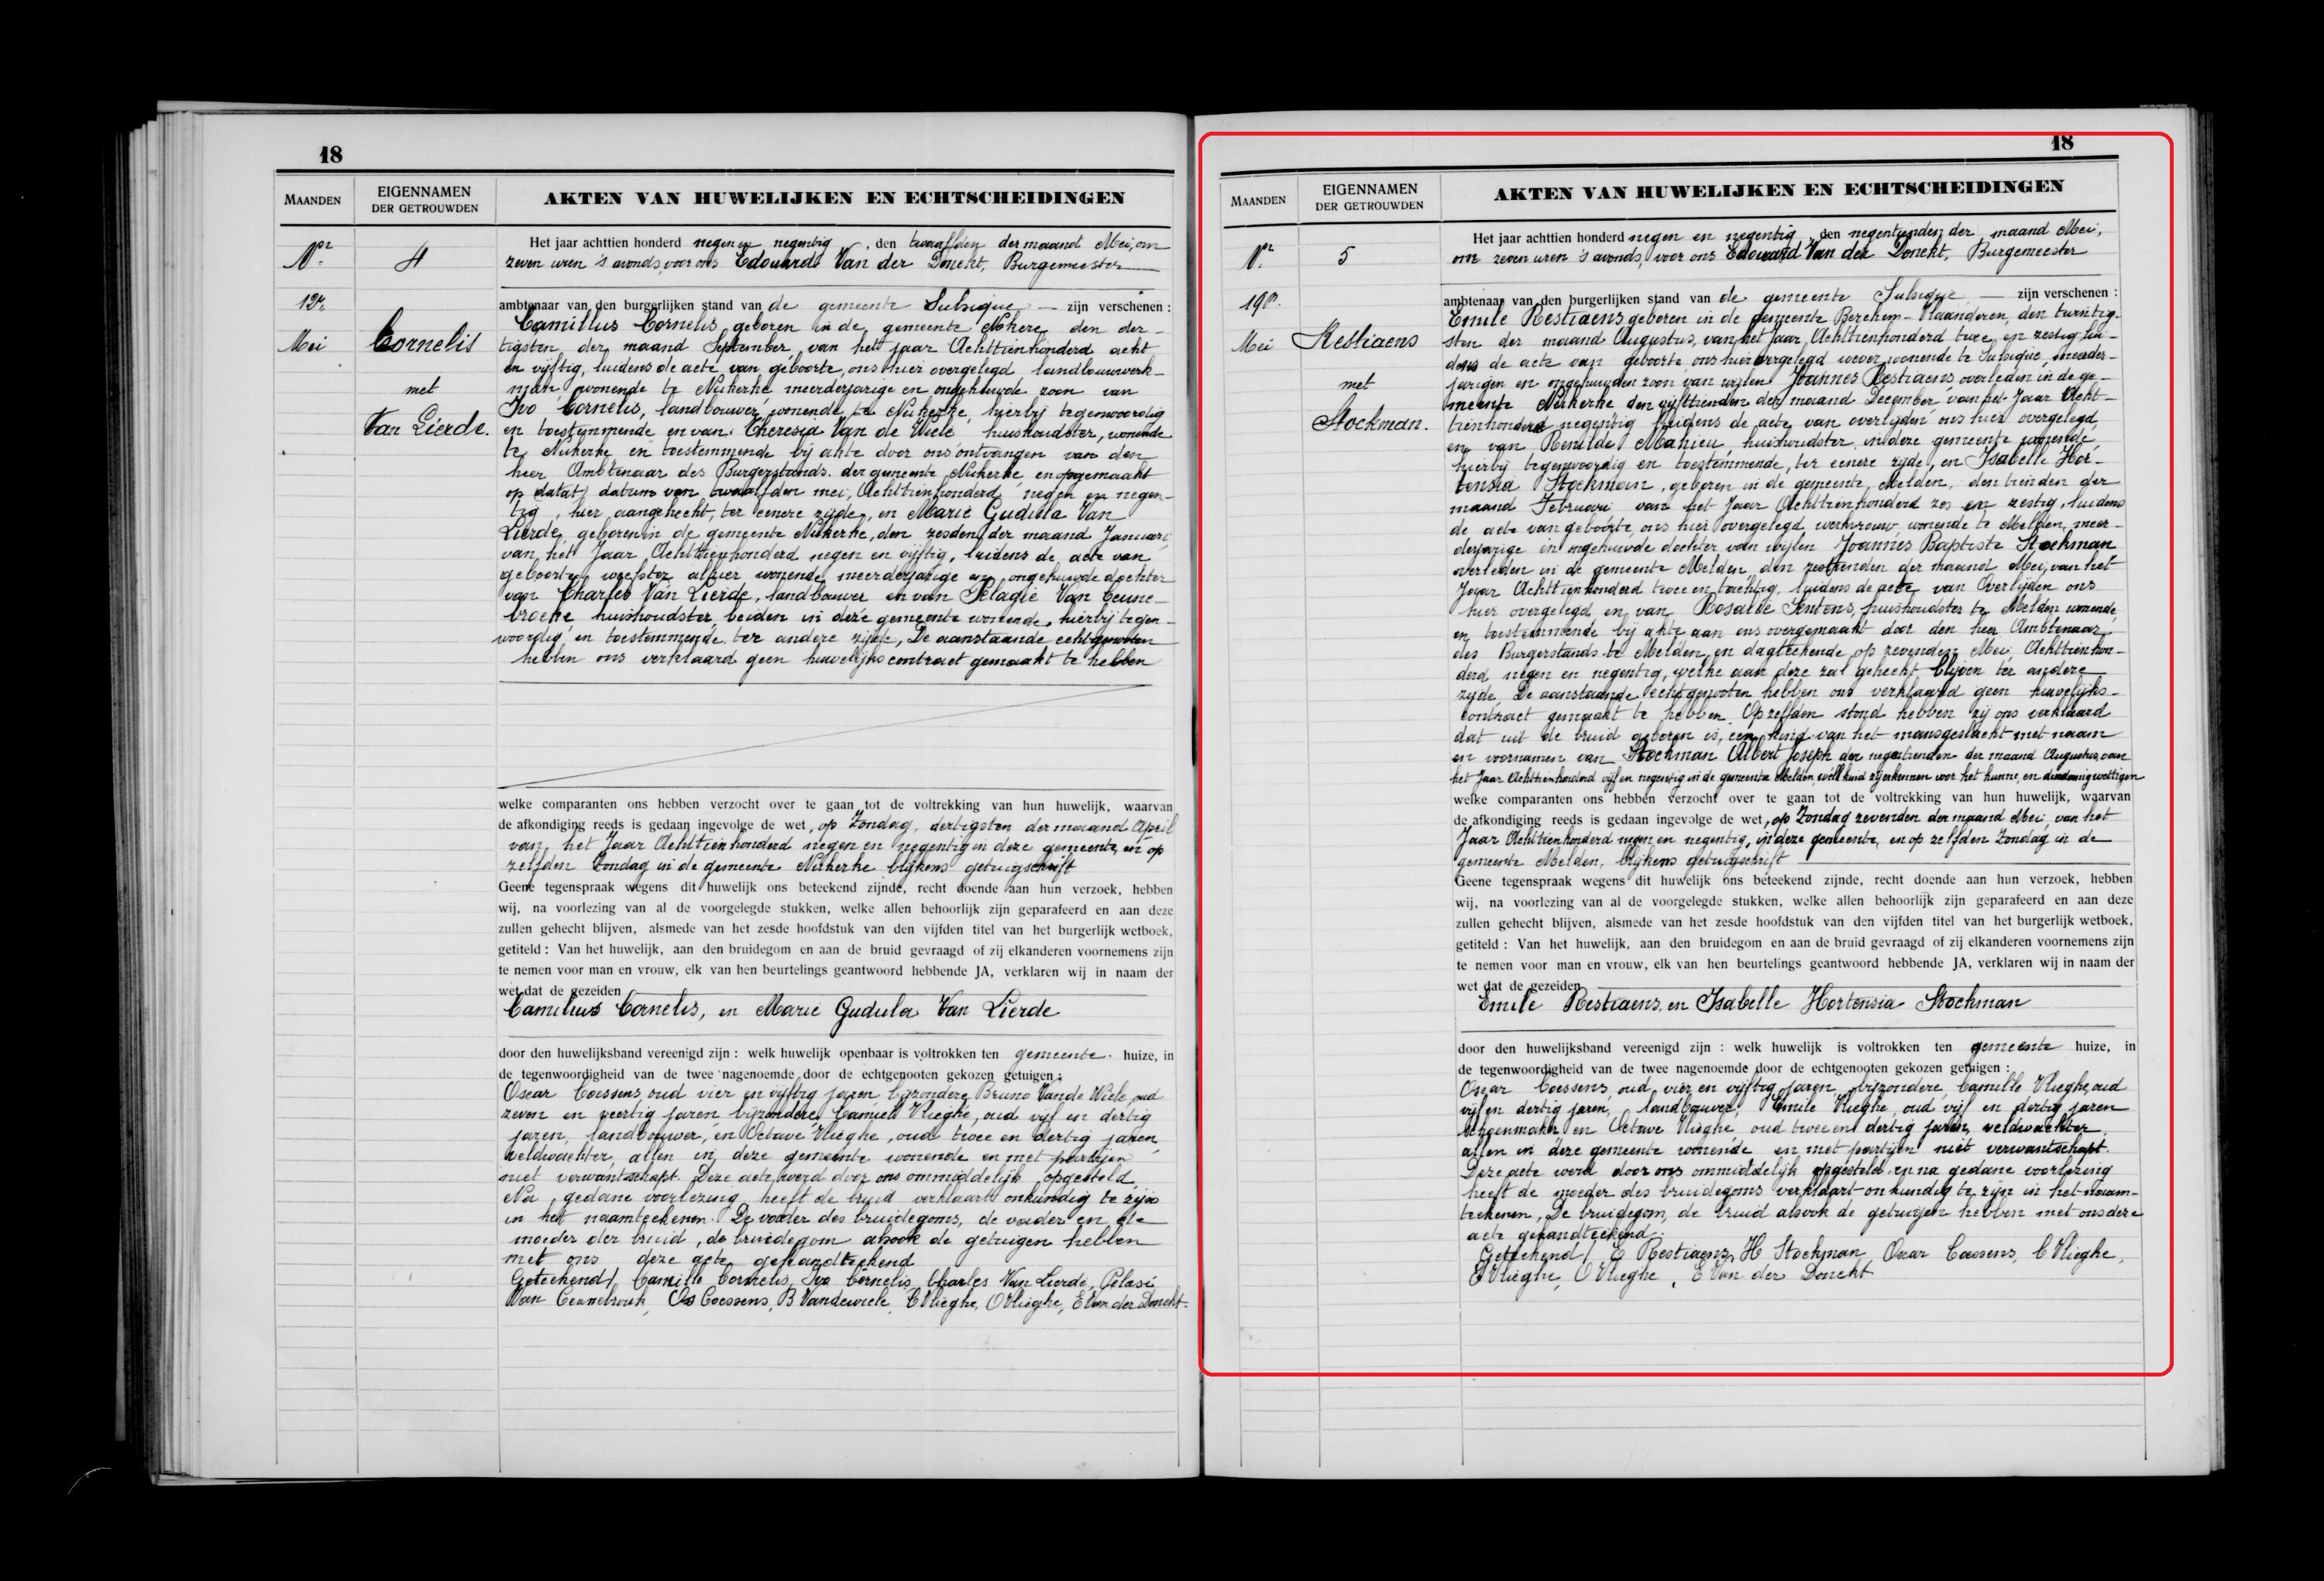 18
MAANDEN
EIGENNAMEN
DER GETROUWDEN
AKTEN VAN HUWELIJKEN EN ECHTSCHEIDINGEN
Nr
4
12n
Mei
Cornelis
met
Van Lierde.
Het jaar achttien honderd negen en negentig, den twaalfden der maand Mei, om
zeven uren 's avonds, voor ons Edouard Van der Donckt, Burgemeester
ambtenaar van den burgerlijken stand van de gemeente Sulsique — zijn verschenen :
Camillus Cornelis, geboren in de gemeente Nokere, den der-
tigsten der maand September, van het jaar Achttienhonderd acht
en vijftig, luidens de acte van geboorte, ons hier overgelegd landbouwwerk-
man, wonende te Nukerke meerderjarige en ongehuwde zoon van
Ivo Cornelis, landbouwer, wonende te Nukerke, hierbij tegenwoordig
en toestemmende en van Theresia Van de Wiele huishoudster, wonende
te Nukerke en toestemmende bij akte door ons ontvangen van den
heer Ambtenaar des Burgerstands der gemeente Nukerke en opgemaakt
op datum van twaalfden mei, Achttienhonderd negen en negen-
tig, hier aangehecht, ter eenere zijde, en Marie Gudula Van
Lierde, geboren in de gemeente Nukerke, den zesden der maand Januari
van het Jaar Achttienhonderd negen en vijftig, luidens de acte van
geboorte, weefster, alhier wonende, meerderjarige en ongehuwde dochter
van Charles Van Lierde, landbouwer en van Pelagie Van Ceune-
broeke huishoudster, beiden in deze gemeente wonende, hierbij tegen-
woordig en toestemmende, ter andere zijde, De aanstaande echtgenooten
hebben ons verklaard geen huwelijkscontract gemaakt te hebben
welke comparanten ons hebben verzocht over te gaan tot de voltrekking van hun huwelijk, waarvan
de afkondiging reeds is gedaan ingevolge de wet, op Zondag, dertigsten der maand April
van het Jaar Achttienhonderd negen en negentig in deze gemeente, en op
zelfden Zondag in de gemeente Nukerke blijkens getuigschrift
Geene tegenspraak wegens dit huwelijk ons beteekend zijnde, recht doende aan hun verzoek, hebben
wij, na voorlezing van al de voorgelegde stukken, welke allen behoorlijk zijn geparafeerd en aan deze
zullen gehecht blijven, alsmede van het zesde hoofdstuk van den vijfden titel van het burgerlijk wetboek,
getiteld : Van het huwelijk, aan den bruidegom en aan de bruid gevraagd of zij elkanderen voornemens zijn
te nemen voor man en vrouw, elk van hen beurtelings geantwoord hebbende JA, verklaren wij in naam der
wet dat de gezeiden
Camillus Cornelis, en Marie Gudula Van Lierde
door den huwelijksband vereenigd zijn : welk huwelijk openbaar is voltrokken ten gemeente huize, in
de tegenwoordigheid van de twee nagenoemde door de echtgenooten gekozen getuigen :
Oscar Coessens, oud vier en vijftig jaren, bijzondere, Bruno Vande Wiele, oud
zeven en veertig jaren, bijzondere, Camiel Vlieghe, oud vijf en dertig
jaren, landbouwer, en Octave Vlieghe, oud twee en dertig jaren,
veldwachter, allen in deze gemeente wonende en met partijen
niet verwantschapt. Deze acte werd door ons ommiddelijk opgesteld
Na gedane voorlezing heeft de bruid verklaard onkundig te zijn
in het naamteekenen. De vader des bruidegoms, de vader en de
moeder der bruid, de bruidegom alsook de getuigen hebben
met ons deze acte gehandteekend
Geteekend/ Camille Cornelis, Ivo Cornelis, Charles Van Lierde, Pelasi
Van Os Coessens, B Vandewiele, C Vlieghe, O Vlieghe, E Van der Donckt.
18
MAANDEN
EIGENNAMEN
DER GETROUWDEN
AKTEN VAN HUWELIJKEN EN ECHTSCHEIDINGEN
Nr
5
19n
Mei
Restiaens
met
Stockman.
Het jaar achttien honderd negen en negentig, den negentienden der maand Mei,
om zeven uren 's avonds, voor ons Edouard Van der Donckt, Burgemeester
ambtenaar van den burgerlijken stand van de gemeente Sulsique — zijn verschenen :
Emile Restiaens geboren in de gemeente Berchem-Vlaanderen, den twintig-
sten der maand Augustus, van het Jaar Achttienhonderd twee en zestig, lui-
dens de acte van geboorte, ons hier overgelegd wever, wonende te Sulsique, meerder-
jarigen en ongehuwden zoon van wijlen Joannes Restiaens, overleden in de ge-
meente Nukerke den vijftienden der maand December van het Jaar Acht-
tienhonderd negentig luidens de acte van overlijden ons hier overgelegd
en van Renilde Mahieu, huishoudster, in deze gemeente wonende,
hierbij tegenwoordig en toestemmende, ter eenere zijde, en Isabelle Hor-
tensia Stockman, geboren in de gemeente Melden, den tienden der
maand Februari van het Jaar Achttienhonderd zes en zestig, luidens
de acte van geboorte, ons hier overgelegd werkvrouw, wonende te Melden, meer-
derjarige en ongehuwde dochter van wijlen Joannes Baptiste Stockman
overleden in de gemeente Melden, den zestienden der maand Mei, van het
Jaar Achttienhonderd twee en tachtig, luidens de acte van Overlijden ons
hier overgelegd en van Rosalie Sentens, huishoudster te Melden wonende
en toestemmende bij akte aan ons overgemaakt door den heer Ambtenaar
des Burgerstands te Melden, en dagteekende op zevenden Mei, Achttienhon-
derd negen en negentig, welke aan deze zal gehecht blijven ter andere
zijde, De aanstaande echtgenooten hebben ons verklaard geen huwelijks-
contract gemaakt te hebben. Op zelfden stond hebben zij ons verklaard
dat uit de bruid geboren is, een kind van het mansgeslacht met naam
en voornamen van Stockman Albert Joseph den negentienden der maand Augustus, van
het Jaar Achttienhonderd vijf en negentig in de gemeente Melden, welk kind zij erkennen voor het hunne, en wettigen
welke comparanten ons hebben verzocht over te gaan tot de voltrekking van hun huwelijk, waarvan
de afkondiging reeds is gedaan ingevolge de wet, op Zondag zevenden der maand Mei, van het
Jaar Achttienhonderd negen en negentig, in deze gemeente, en op zelfden Zondag in de
gemeente Melden, blijkens getuigschrift
Geene tegenspraak wegens dit huwelijk ons beteekend zijnde, recht doende aan hun verzoek, hebben
wij, na voorlezing van al de voorgelegde stukken, welke allen behoorlijk zijn geparafeerd en aan deze
zullen gehecht blijven, alsmede van het zesde hoofdstuk van den vijfden titel van het burgerlijk wetboek,
getiteld : Van het huwelijk, aan den bruidegom en aan de bruid gevraagd of zij elkanderen voornemens zijn
te nemen voor man en vrouw, elk van hen beurtelings geantwoord hebbende JA, verklaren wij in naam der
wet dat de gezeiden
Emile Restiaens, en Isabelle Hortensia Stockman
door den huwelijksband vereenigd zijn : welk huwelijk is voltrokken ten gemeente huize, in
de tegenwoordigheid van de twee nagenoemde door de echtgenooten gekozen getuigen :
Oscar Coessens, oud vier en vijftig jaren, bijzondere, Camille Vlieghe, oud
vijf en dertig jaren, landbouwer, Emile Vlieghe, oud vijf en dertig jaren
schoenmaker en Octave Vlieghe oud twee en dertig jaren, veldwachter,
allen in deze gemeente wonende en met partijen niet verwantschapt.
Deze acte werd door ons ommiddelijk opgesteld en na gedane voorlezing
heeft de moeder des bruidegoms verklaart onkundig te zijn in het naam-
teekenen, De bruidegom, de bruid alsook de getuigen hebben met ons deze
acte gehandteekend.
Geteekend/ E Restiaens, H Stockman, Oscar Coessens, C Vlieghe,
E Vlieghe, O Vlieghe, E Van der Donckt